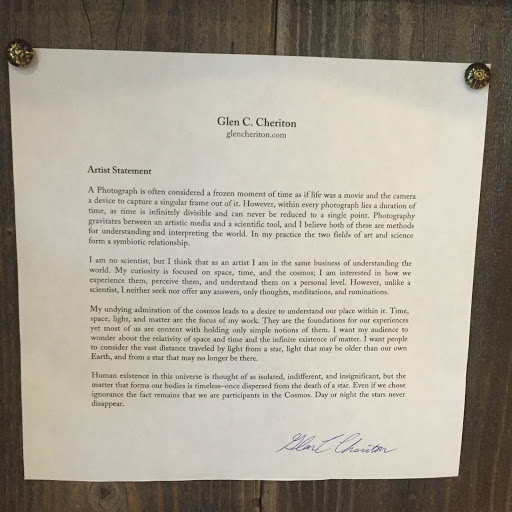 Glen C. Cheriton
glencheriton.com
Artist Statement
A Photograph is often considered a frozen moment of time as if life was a movie and the camera
a device to capture a singular frame out of it. However, within every photograph lies a duration of
time, as time is infinitely divisible and can never be reduced to a single point. Photography
gravitates between an artistic media and a scientific tool, and I believe both of these are methods
for understanding and interpreting the world. In my practice the two fields of art and science
form a symbiotic relationship.
I am no scientist, but I think that as an artist I am in the same business of understanding the
world. My curiosity is focused on space, time, and the cosmos; I am interested in how we
experience them, perceive them, and understand them on a personal level. However, unlike a
scientist, I neither seek nor offer any answers, only thoughts, meditations, and ruminations.
My undying admiration of the cosmos leads to a desire to understand our place within it. Time,
space, light, and matter are the focus of my work. They are the foundations for our experiences
yet most of us are content with holding only simple notions of them. I want my audience to
wonder about the relativity of space and time and the infinite existence of matter. I want people
to consider the vast distance traveled by light from a star, light that may be older than our own
Earth, and from a star that may no longer be there.
Human existence in this universe is thought of as isolated, indifferent, and insignificant, but the
matter that forms our bodies is timeless–once dispersed from the death of a star. Even if we chose
ignorance the fact remains that we are participants in the Cosmos. Day or night the stars never
disappear.
Glen C Cheriton